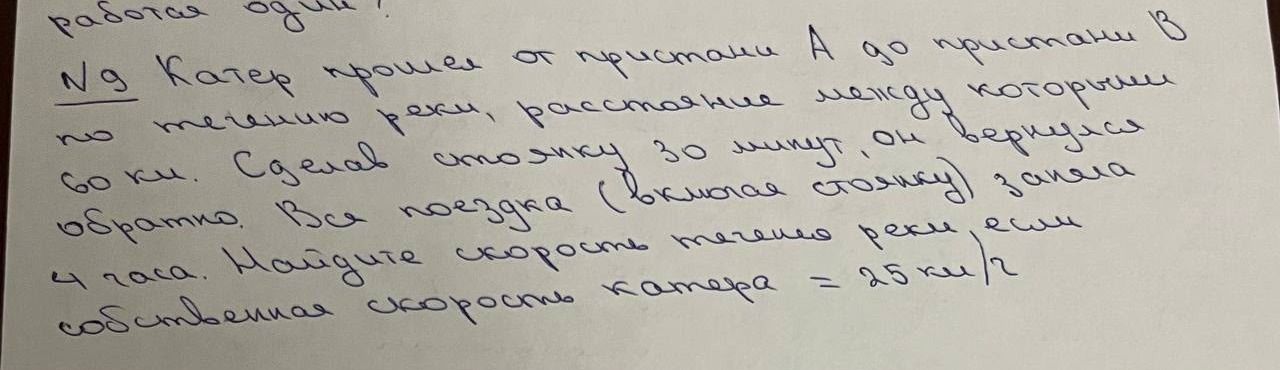 работая один?
N9 Катер прошел от пристани А до пристани В
по течению реки, расстояние между которыми
60 км. Сделав стоянку 30 минут, он вернулся
обратно. Вся поездка (включая стоянку) заняла
4 часа. Найдите скорость течения реки, если
собственная скорость катера = 25 км/ч